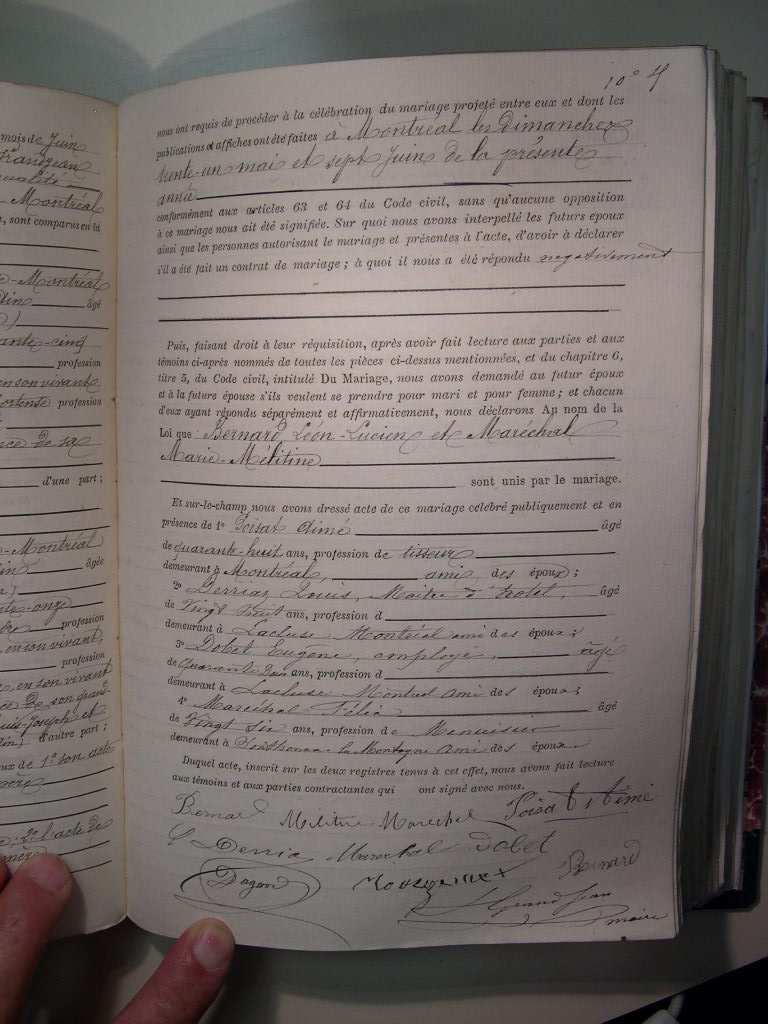 mois de Juin
Grandjean
qualité
Montréal
, sont comparus en la
Montréal
âgé
ante-cinq
profession
en son vivant
ortense profession
ence de sa
d'une part ;
Montréal
âgée
profession
en son vivant
profession
en son vivant
de son grand
Louis-Joseph et
d'autre part ;
de 1º son acte
2º l'acte de
10º
nous ont requis de procéder à la célébration du mariage projeté entre eux et dont les
publications et affiches ont été faites à Montréal les Dimanches
trente-un mai et sept Juin de la présente
année
conformément aux articles 63 et 64 du Code civil, sans qu'aucune opposition
à ce mariage nous ait été signifiée. Sur quoi nous avons interpellé les futurs époux
ainsi que les personnes autorisant le mariage et présentes à l'acte, d'avoir à déclarer
s'il a été fait un contrat de mariage ; à quoi il nous a été répondu negativement
Puis, faisant droit à leur réquisition, après avoir fait lecture aux parties et aux
témoins ci-après nommés de toutes les pièces ci-dessus mentionnées, et du chapitre 6,
titre 5, du Code civil, intitulé Du Mariage, nous avons demandé au futur époux
et à la future épouse s'ils veulent se prendre pour mari et pour femme ; et chacun
d'eux ayant répondu séparément et affirmativement, nous déclarons Au nom de la
Loi que Bernard Léon-Lucien et Maréchal
Marie-Mélitine
sont unis par le mariage.
Et sur-le-champ nous avons dressé acte de ce mariage célébré publiquement et en
présence de 1º Poisat Aimé âgé
de quarante-huit ans, profession de tisseur
demeurant à Montréal, ami, des époux ;
2º Derriaz Louis, Maître d'hotel, âgé
de Vingt huit ans, profession d
demeurant à Lacluse Montréal ami des époux ;
3º Dobet Eugene, employé, âgé
de Quarante ans, profession d
demeurant à Lacluse Montreal ami des époux ;
4º Maréchal Félix âgé
de Vingt six ans, profession de Menuisier
demeurant à la Montagne ami des époux
Duquel acte, inscrit sur les deux registres tenus à cet effet, nous avons fait lecture
aux témoins et aux parties contractantes qui ont signé avec nous.
Bernard Mélitine Marechal Poisat Aimé
L Derriaz Marechal Dobet
Dagon Bernard
Grandjean
maire